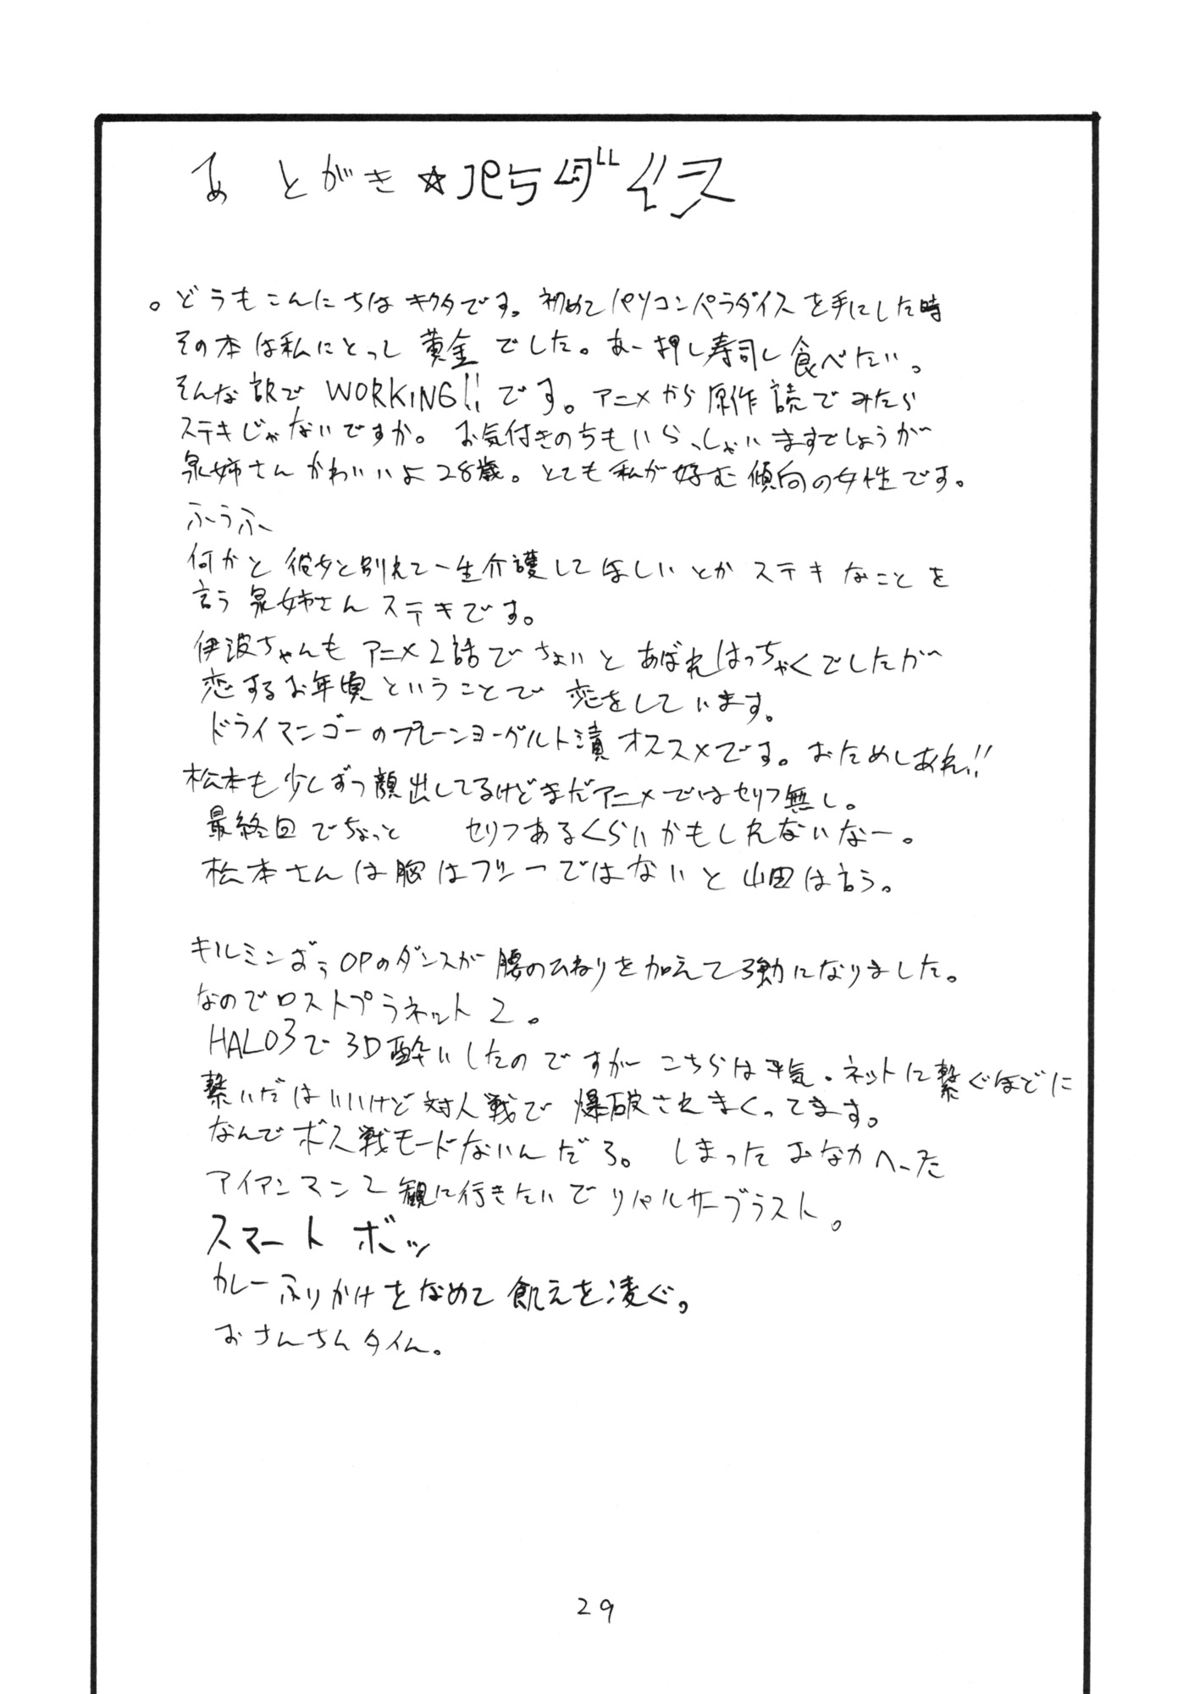 あとがき☆パラダイス
。どうもこんにちはキクタです。初めてパソコンパラダイスを手にした時
その本は私にとって黄金でした。あー押し寿司し食べたい。
そんな訳でWORKING!!です。アニメから原作読でみたら
ステキじゃないですか。お気付きのちもいらっしゃいますでしょうが
泉姉さんかわいいよ28歳。とても私が好む傾向の女性です。
ふぅふー
何かと彼女と別れて一生介護してほしいとかステキなことを
言う泉姉さんステキです。
伊波ちゃんもアニメ2話でちょいとあばれはっちゃくでしたが
恋するお年頃ということで恋をしています。
ドライマンゴーのプレーンヨーグルト漬オススメです。おためしあれ!!
松本も少しずつ顔出ししてるけどまだアニメではセリフ無し。
最終回でちょっと セリフあるくらいかもしれないなー。
松本さんは胸はフツーではないと山田は言う。
キルミンずぅOPのダンスが腰のひねりを加えて3動になりました。
なのでロストプラネット2。
HALO3で3D酔いしたのですがこちらは平気。ネットに繋ぐほどに
繋いだはいいけど対人戦で爆破されまくってます。
なんでボス戦モードないんだろ。しまったおなかへーた
アイアンマン2観に行きたいでリパルサーブラスト。
スマートボッ
カレーふりかけをなめて飢えを凌ぐ。
おさんちんタイム。
29